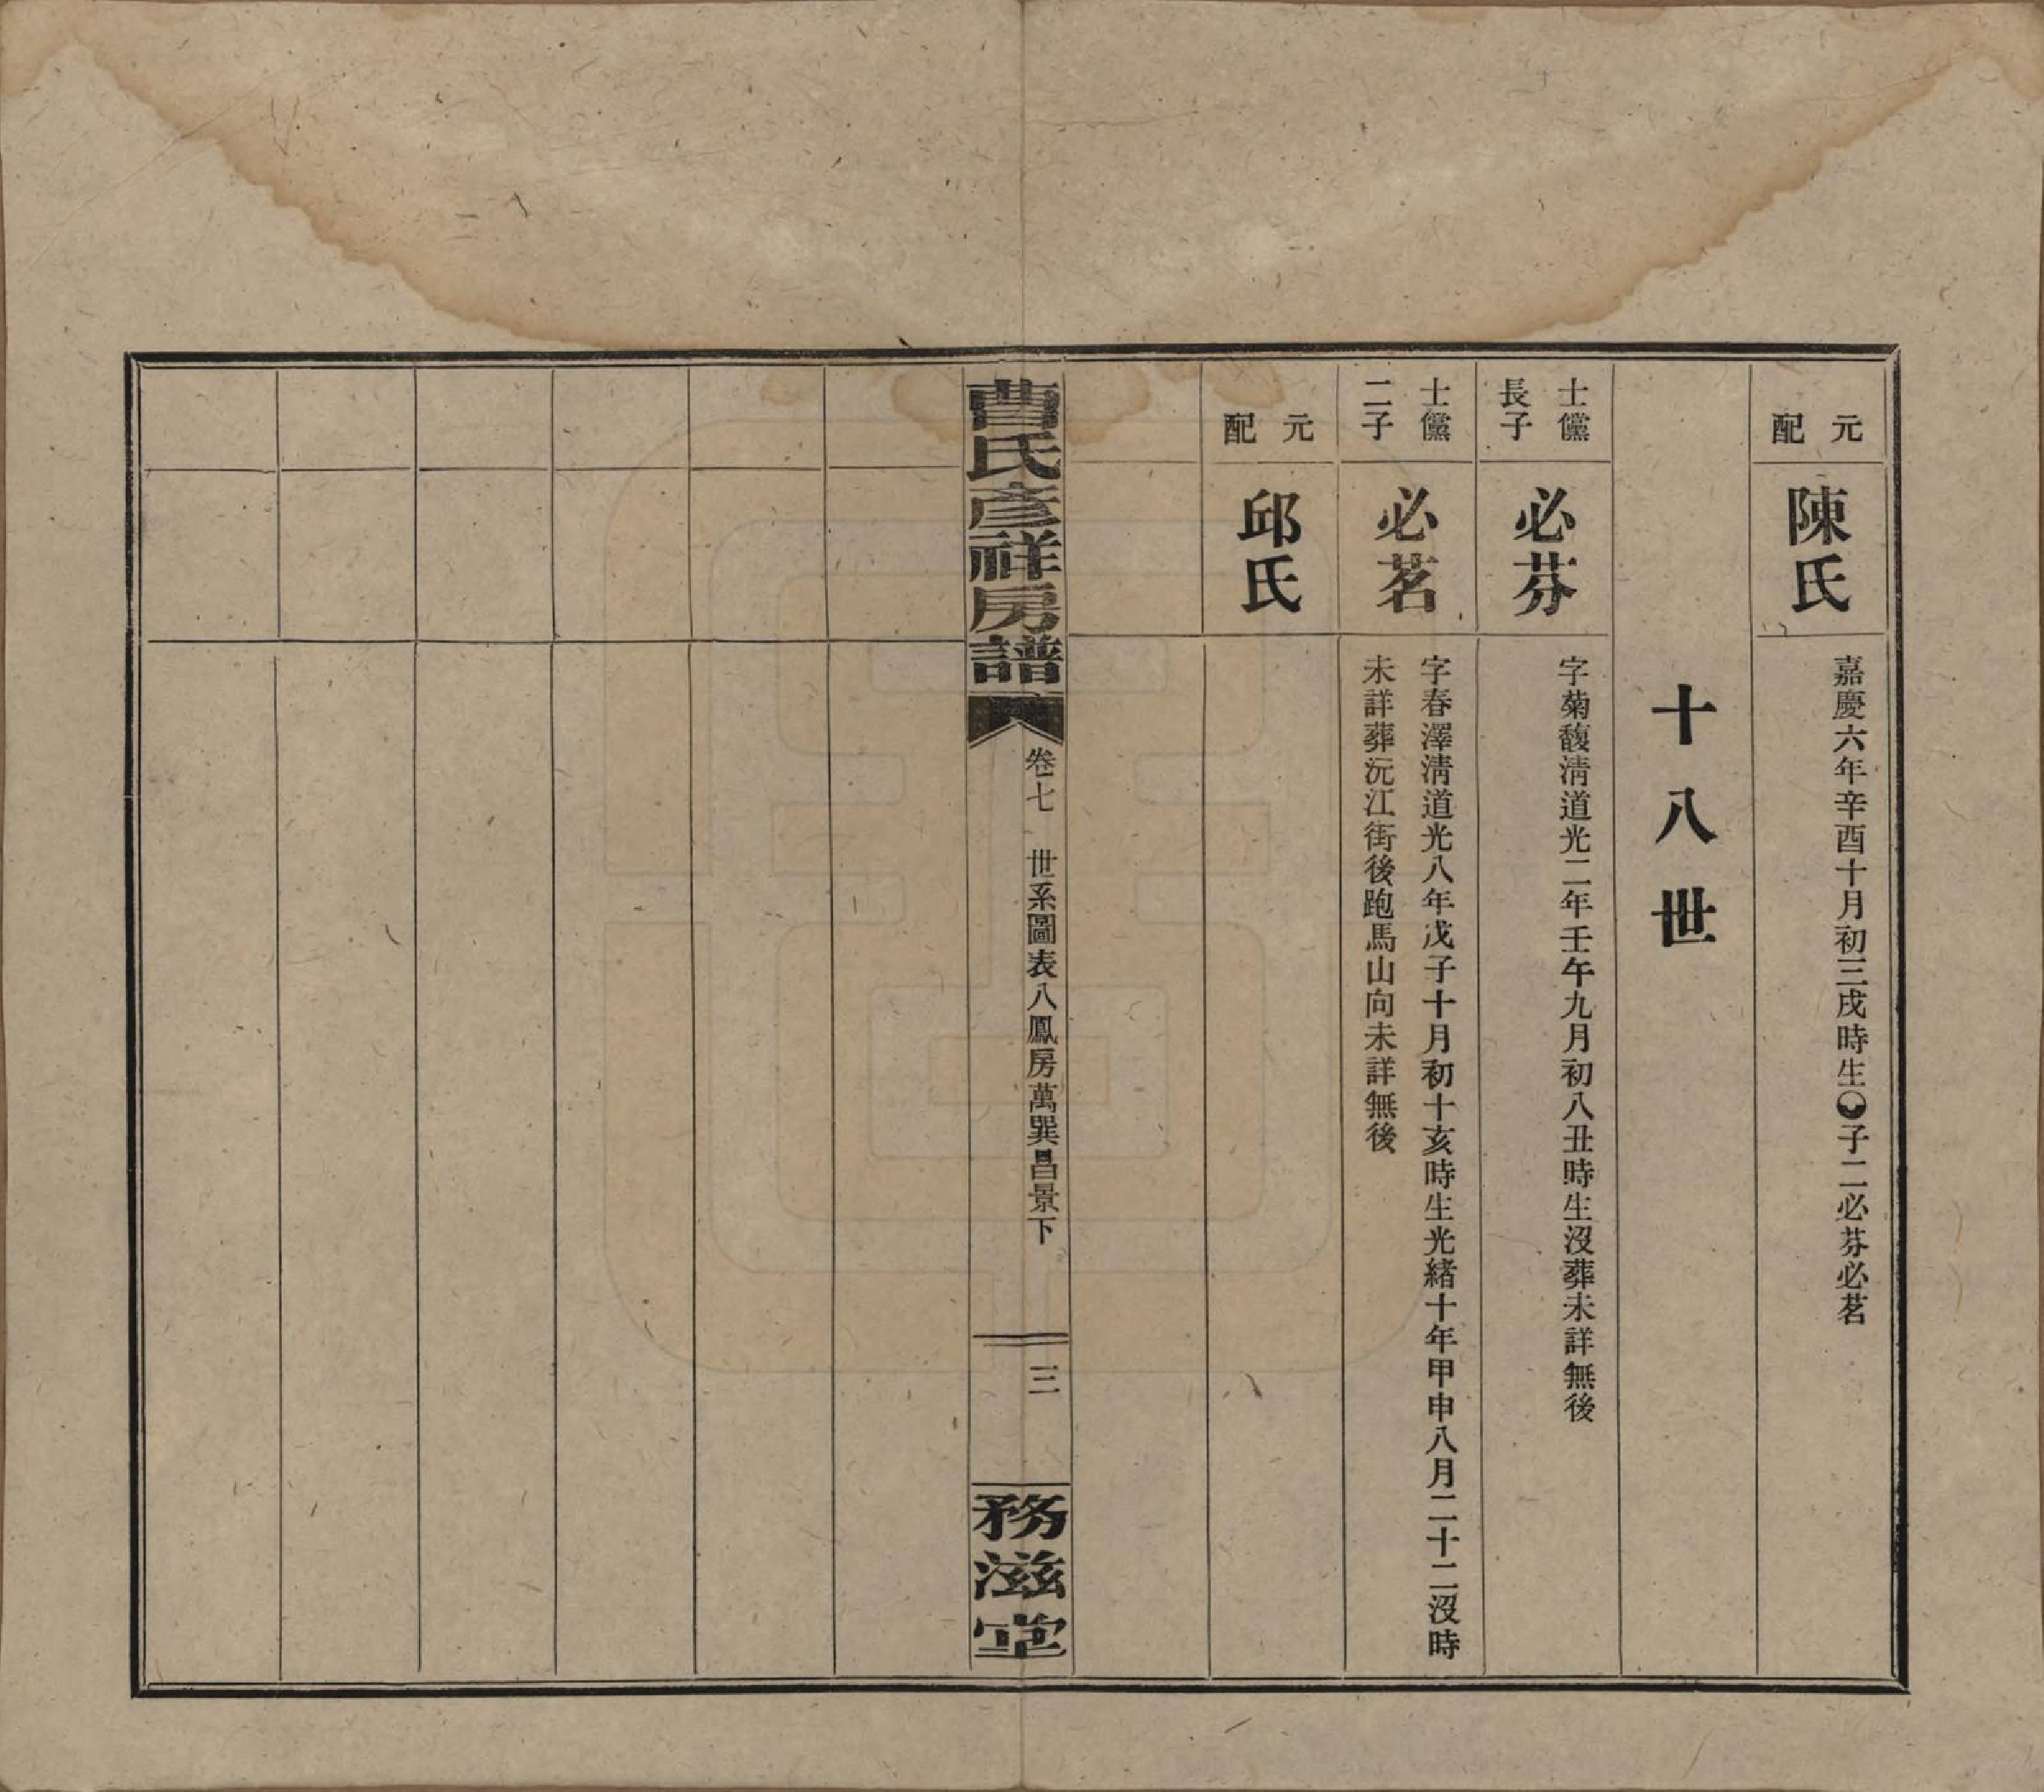 元配
陳氏
嘉慶六年辛酉十月初三戌時生子二必芬必茗
十八世
士儻
長子
必芬
字菊馥淸道光二年壬午九月初八丑時生沒葬未詳無後
士儻
二子
必茗
字春澤淸道光八年戊子十月初十亥時生光緒十年甲申八月二十二沒時
未詳葬沅江街後跑馬山向未詳無後
元配
邱氏
曹氏彥祥房譜
卷七 世系圖表八鳳房萬巽昌景下
三
務滋堂